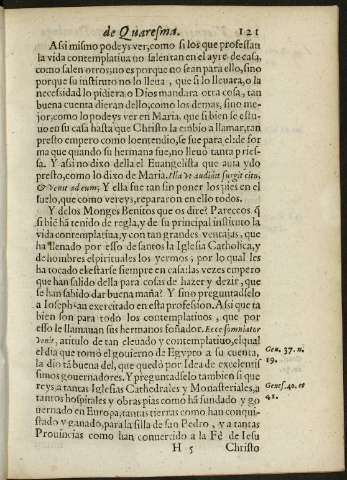 de Quaresma. 121
Assi mismo podeys ver, como si los que professan
la vida contemplatiua no salen tan en el ayre de casa,
como salen otros, no es porque no sean para ello, sino
porque su instituto no lo lleua, que si lo lleuara, o la
necessidad lo pidiera, o Dios mandara otra cosa, tan
buena cuenta dieran dello, como los demas, sino me-
jor, como lo podeys ver en Maria, que si bien se estu-
uo en su casa hasta que Christo la embio a llamar, tan
presto empero como lo entendio, se fue para el de for
ma que quando su hermana fue, no lleuò tanta prie-
ssa. Y assi no dixo della el Euangelista que auia ydo
presto, como lo dixo de Maria. Illa vt audiuit surgit citò,
& venit ad eum; Y ella fue tan sin poner los pies en el
suelo, que como vereys, repararon en ello todos.
Y de los Monges Benitos que os dire? Pareceos q̃
si biẽ hã tenido de regla, y de su principal instituto la
vida contemplatiua, y con tan grandes ventajas, que
ha llenado por esso de santos la Iglesia Catholica, y
de hombres espirituales los yermos, por lo qual les
ha tocado el estarse siempre en casa: las vezes empero
que han salido della para cosas de hazer y dezir, que
se han sabido dar buena maña? Y sino preguntadselo
a Ioseph tan exercitado en esta profession. Assi que ta
bien son para todo los contemplatiuos, que por
esso le llamauan sus hermanos soñador. Ecce somniator
venit, a titulo de tan eleuado y contemplatiuo, el qual
el dia que tomò el gouierno de Egypto a su cuenta,
Gen. 37. n.
19.
la dio tã buena del, que quedó por Idea de excelentis
simos gouernadores. Y preguntadselo tambien si que
reys, a tantas Iglesias Cathedrales y Monasteriales, a
Genes. 40. et
41.
tantos hospitales y obras pias como hã fundado y go
uernado en Europa, tantas tierras como han conqui-
stado y ganado, para la silla de san Pedro, y a tantas
Prouincias como han conuertido a la Fè de Iesu
H 5 Christo